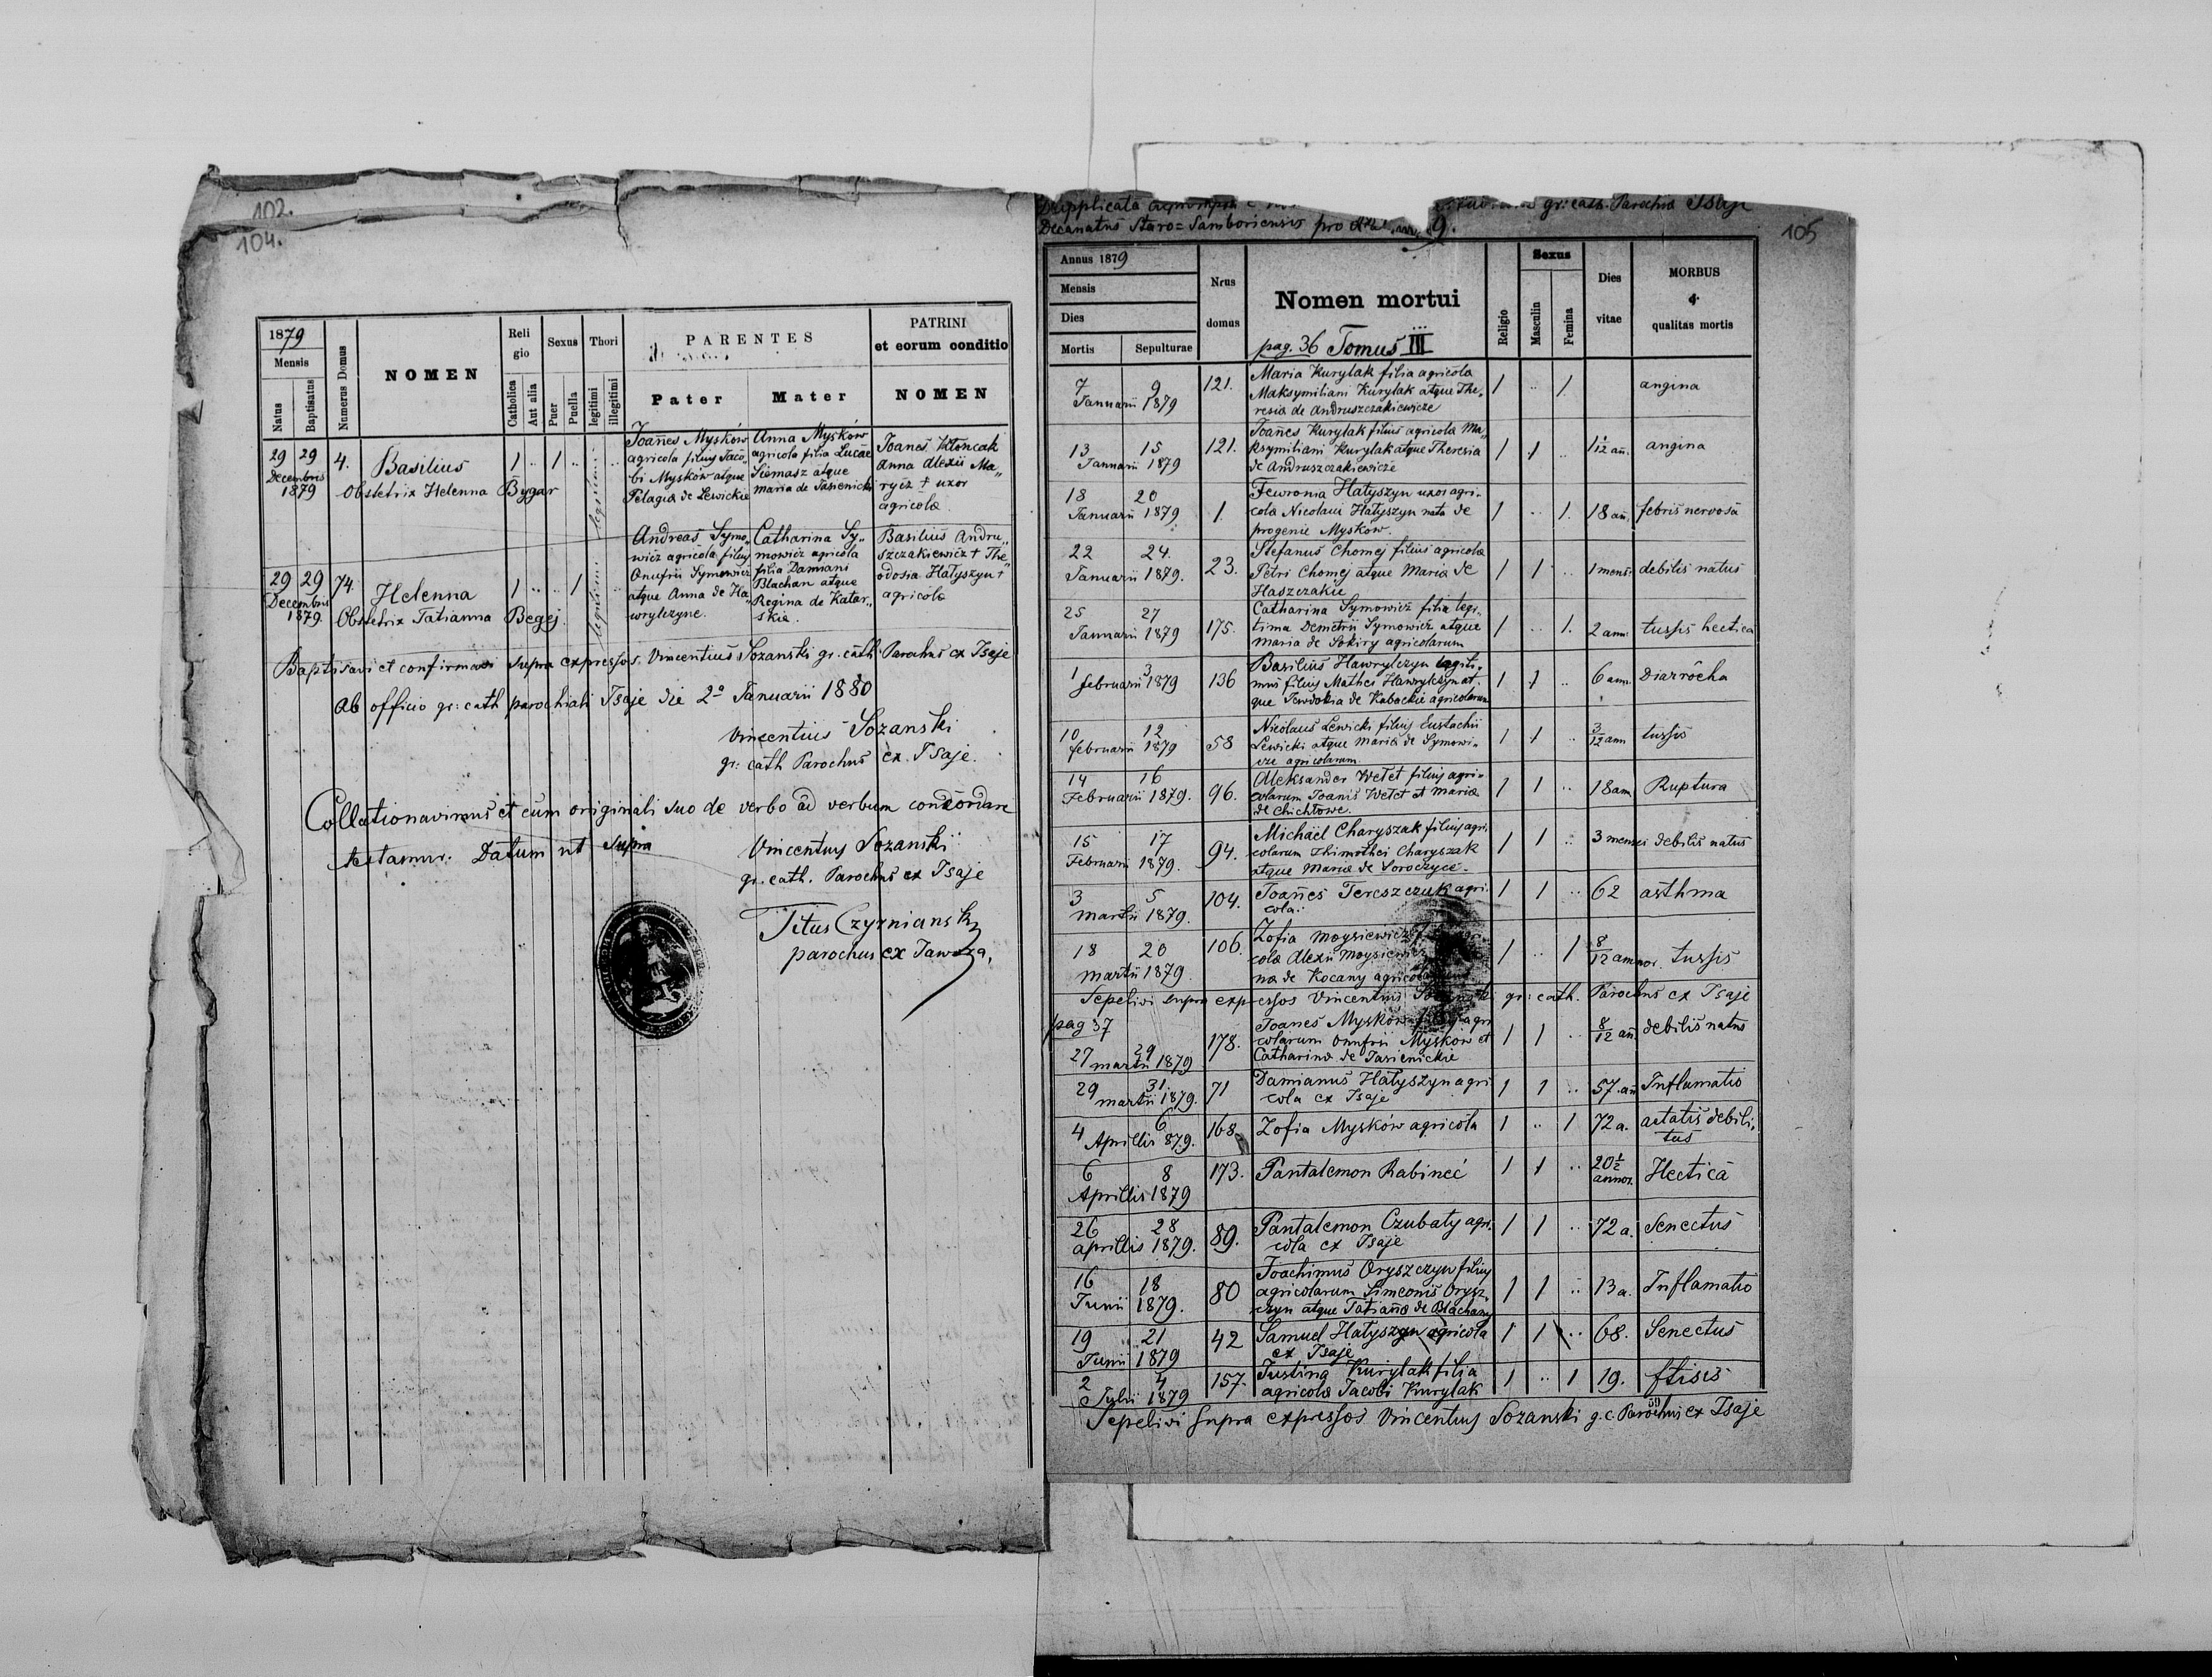 102.
104.
1879
Mensis
Natus
Baptisatus
Numerus Domus
NOMEN
Religio
Catholica
Aut alia
Sexus
Puer
Puella
Thori
legitimi
illegitimi
PARENTES
Pater
Mater
PATRINI
et eorum conditio
NOMEN
29 29 4. Basilius 1 .. 1 ..
Decembris
1879 Obstetrix Helenna Bygar
legitimi
Joañes Mysków
agricola filius Jaco-
bi Mysków atque
Pelagia de Lewickie
Anna Mysków
agricola filia Lucae
Siemasz atque
Maria de Jasienicki
Joanes Kloncak
Anna Alexii Ma„
rycz † uxor
agricolae
29 29 74. Helenna 1 .. .. 1
Decembris
1879. Obstetrix Tatianna Begej
legitimi
Andreas Symo„
wicz agricola filius
Onufrii Symowicz
atque Anna de Ha„
wrylczyne.
Catharina Sy„
mowicz agricola
filia Damiani
Blachan atque
Regina de Katar„
skie.
Basilius Andru„
szczakiewicz † The„
odosia Hatyszyn †
agricolae
Baptisavi et confirmavi supra expressos. Vincentius Sozanski gr. cath. Parochus ex Isaje
Ab officio gr: cath parochiali Isaje die 2º Januarii 1880
Vincentius Sozanski
gr: cath Parochus ex. Isaje.
Collationavimus et cum originali suo de verbo ad verbum concordare
testamur. Datum ut supra
Vincentius Sozanski
gr. cath. Parochus ex Isaje
Titus Czyrnianski
parochus ex Jawora,
105
gr: cath. Parochia Isaje
Decanatus Staro=Samboriensis pro 9.
Annus 1879
Mensis
Dies
Mortis
Sepulturae
Nrus
domus
Nomen mortui
pag. 36 Tomus III
Religio
Sexus
Masculin
Femina
Dies
vitae
MORBUS
&
qualitas mortis
7 9 121. Maria Kurylak filia agricola 1 .. 1. angina
Januarii 1879 Maksymiliani Kurylak atque The„
resia de Andruszczakiewicze
13 15 121. Joañes Kurylak filius agricola Ma„ 1 1 .. 1 1/12 añ. angina
Januarii 1879 ksymiliani Kurylak atque Theresia
de Andruszczakiewicze
18 20 1. Fewronia Hatyszyn uxor agri- 1 .. 1. 18 añ. febris nervosa
Januarii 1879 cola Nicolaui Hatyszyn nata de
progenie Mysków.
22 24. 23. Stefanus Chomej filius agricolae 1 1 .. 1 mens. debilis natus
Januarii 1879. Petri Chomej atque Maria de
Haszczakie
25 27 175. Catharina Symowicz filia legi- 1 .. 1. 2 ann. tussis hectica
Januarii 1879 tima Demetrii Symowicz atque
Maria de Sokiry agricolarum
1 3 136 Basilius Hawrylczyn legiti- 1 1 .. 6 ann. Diarröcha
februarii 1879 mus filius Mathei Hawrylczyn at„
que Jewdokia de Kabackie agricolarum
10 12 58 Nicolaus Lewicki filius Eustachii 1 1 .. 3/12 ann tussis
februarii 1879 Lewicki atque Maria de Symowi-
cze agricolarum.
14 16 96. Aleksander Wetet filius agri- 1 1 .. 18 ann. Ruptura
Februarii 1879. colarum Joanis Wetet et Maria
de Chichtowe.
15 17 94. Michaël Charyszak filius agri- 1 1 .. 3 mensi debilis natus
Februarii 1879. colarum Thimothei Charyszak
atque Maria de Soroczyce.
3 5 104. Joañes Tereszczuk agri- 1 1 .. 62 asthma
martii 1879. cola.
18 20 106. Zofia Moysiewicz 1 .. 1 8/12 annor. tussis
martii 1879 colae Alexii Moysiewicz
na de Kocany agricolarum
Sepelivi supra expressos Vincentius Sozanski gr: cath. Parochus ex Isaje
pag 37
27 29 178. Joanes Mysków filius agri 1 1 .. 8/12 añ. debilis natus
martii 1879 colarum Onufrii Mysków et
Catharina de Jasienickie
29 31 71 Damianus Hatyszyn agri 1 1 .. 57. añ Inflamatio
martii 1879. cola ex Isaje
4 6 168. Zofia Mysków agricola 1 .. 1 72 a. aetatis debili„
Aprillis 1879. tas
6 8 173. Pantalemon Rabineć 1 1 .. 20 1/2 Hectica
Aprillis 1879 annor.
26 28 89. Pantalemon Czubaty agri. 1 1 .. 72 a. Senectus
aprillis 1879. cola ex Isaje
16 18 80 Joachimus Oryszczyn filius 1 1 .. 13 a. Inflamatio
Junii 1879. agricolarum Simeonis Orysz„
czyn atque Tatiana de Blachany
19 21 42 Samuel Hatyszyn agricola 1 1 .. 68. Senectus
Junii 1879 ex Isaje
2 4 157. Justina Kurylak filia 1 .. 1 19. ftisis
Julii 1879 agricolae Jacobi Kurylak
59
Sepelivi supra expressos Vincentius Sozanski g.c. Parochus ex Isaje